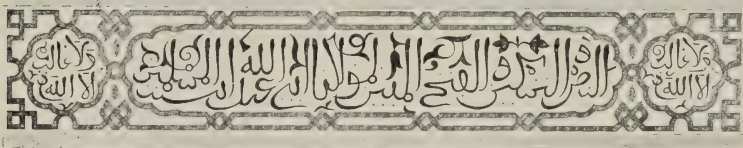 ولا غالب الا الله النصر والتمكين والفتح المبين لمولانا ابي عبد الله امير المسلمين ولا غالب الا الله